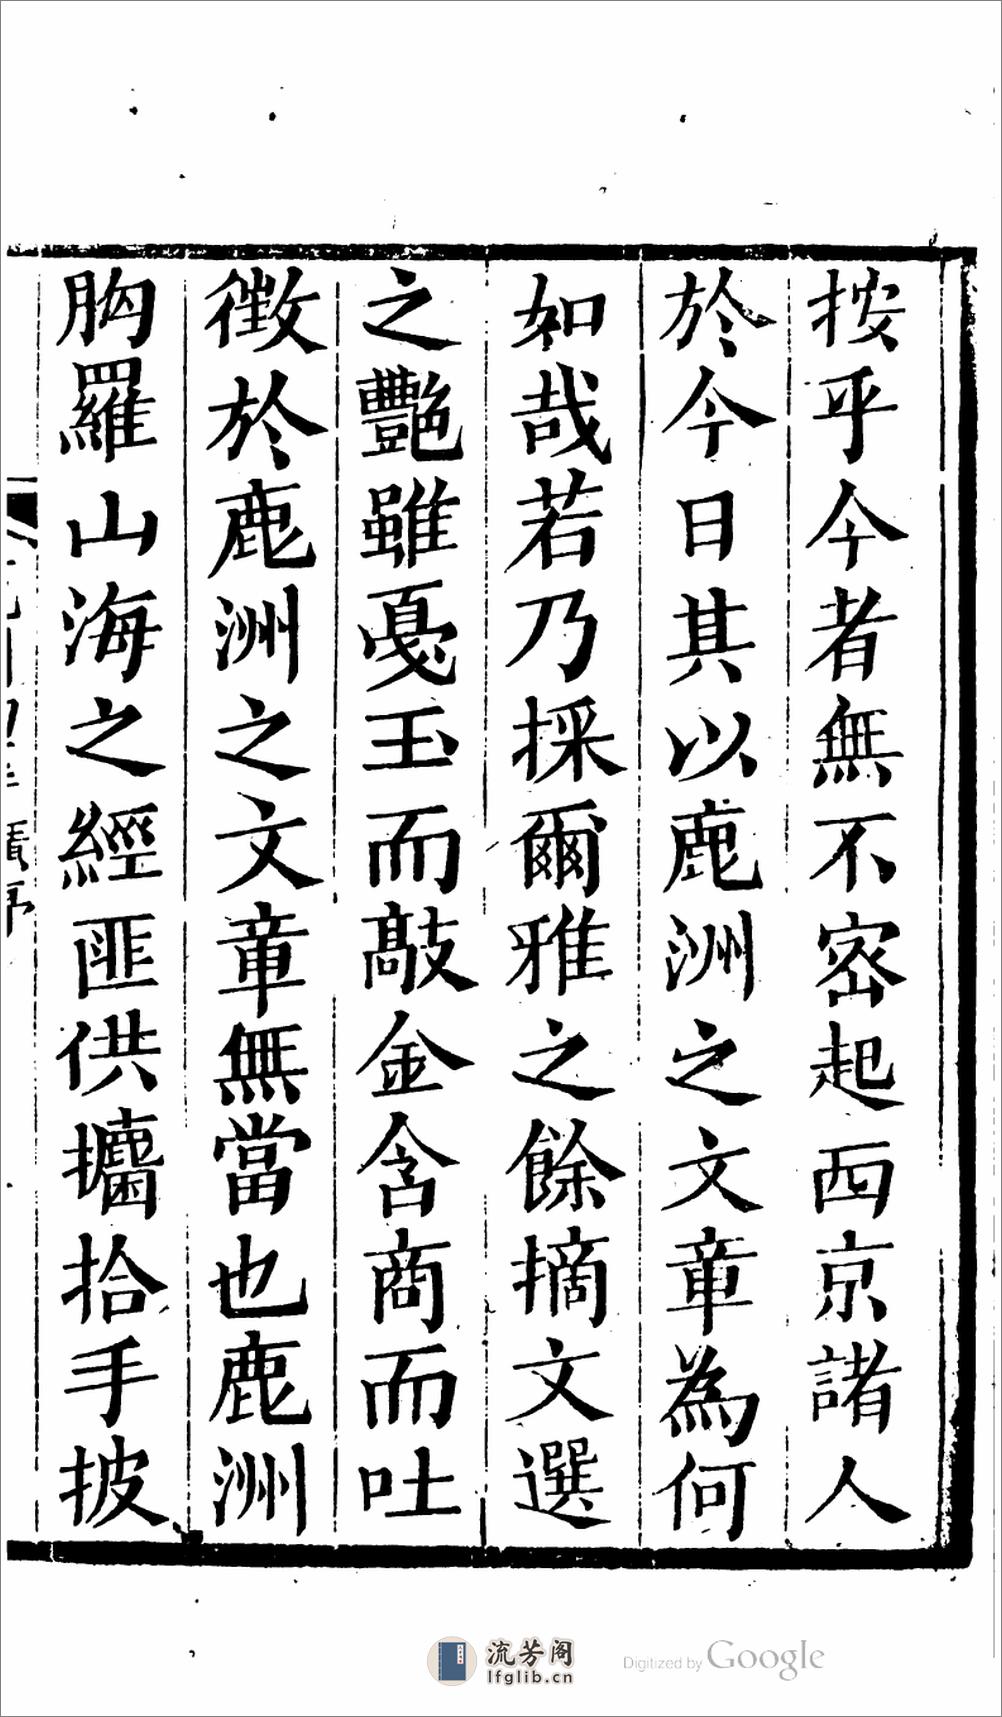 按乎今者無不密起西京諸人
於今日其以鹿洲之文章為何
如哉若乃採爾雅之餘摘文選
之艷雖戛玉而敲金含商而吐
徵於鹿洲之文章無當也鹿洲
胸羅山海之經匪供攟拾手披
流芳阁
lfglib.cn
Digitized by Google